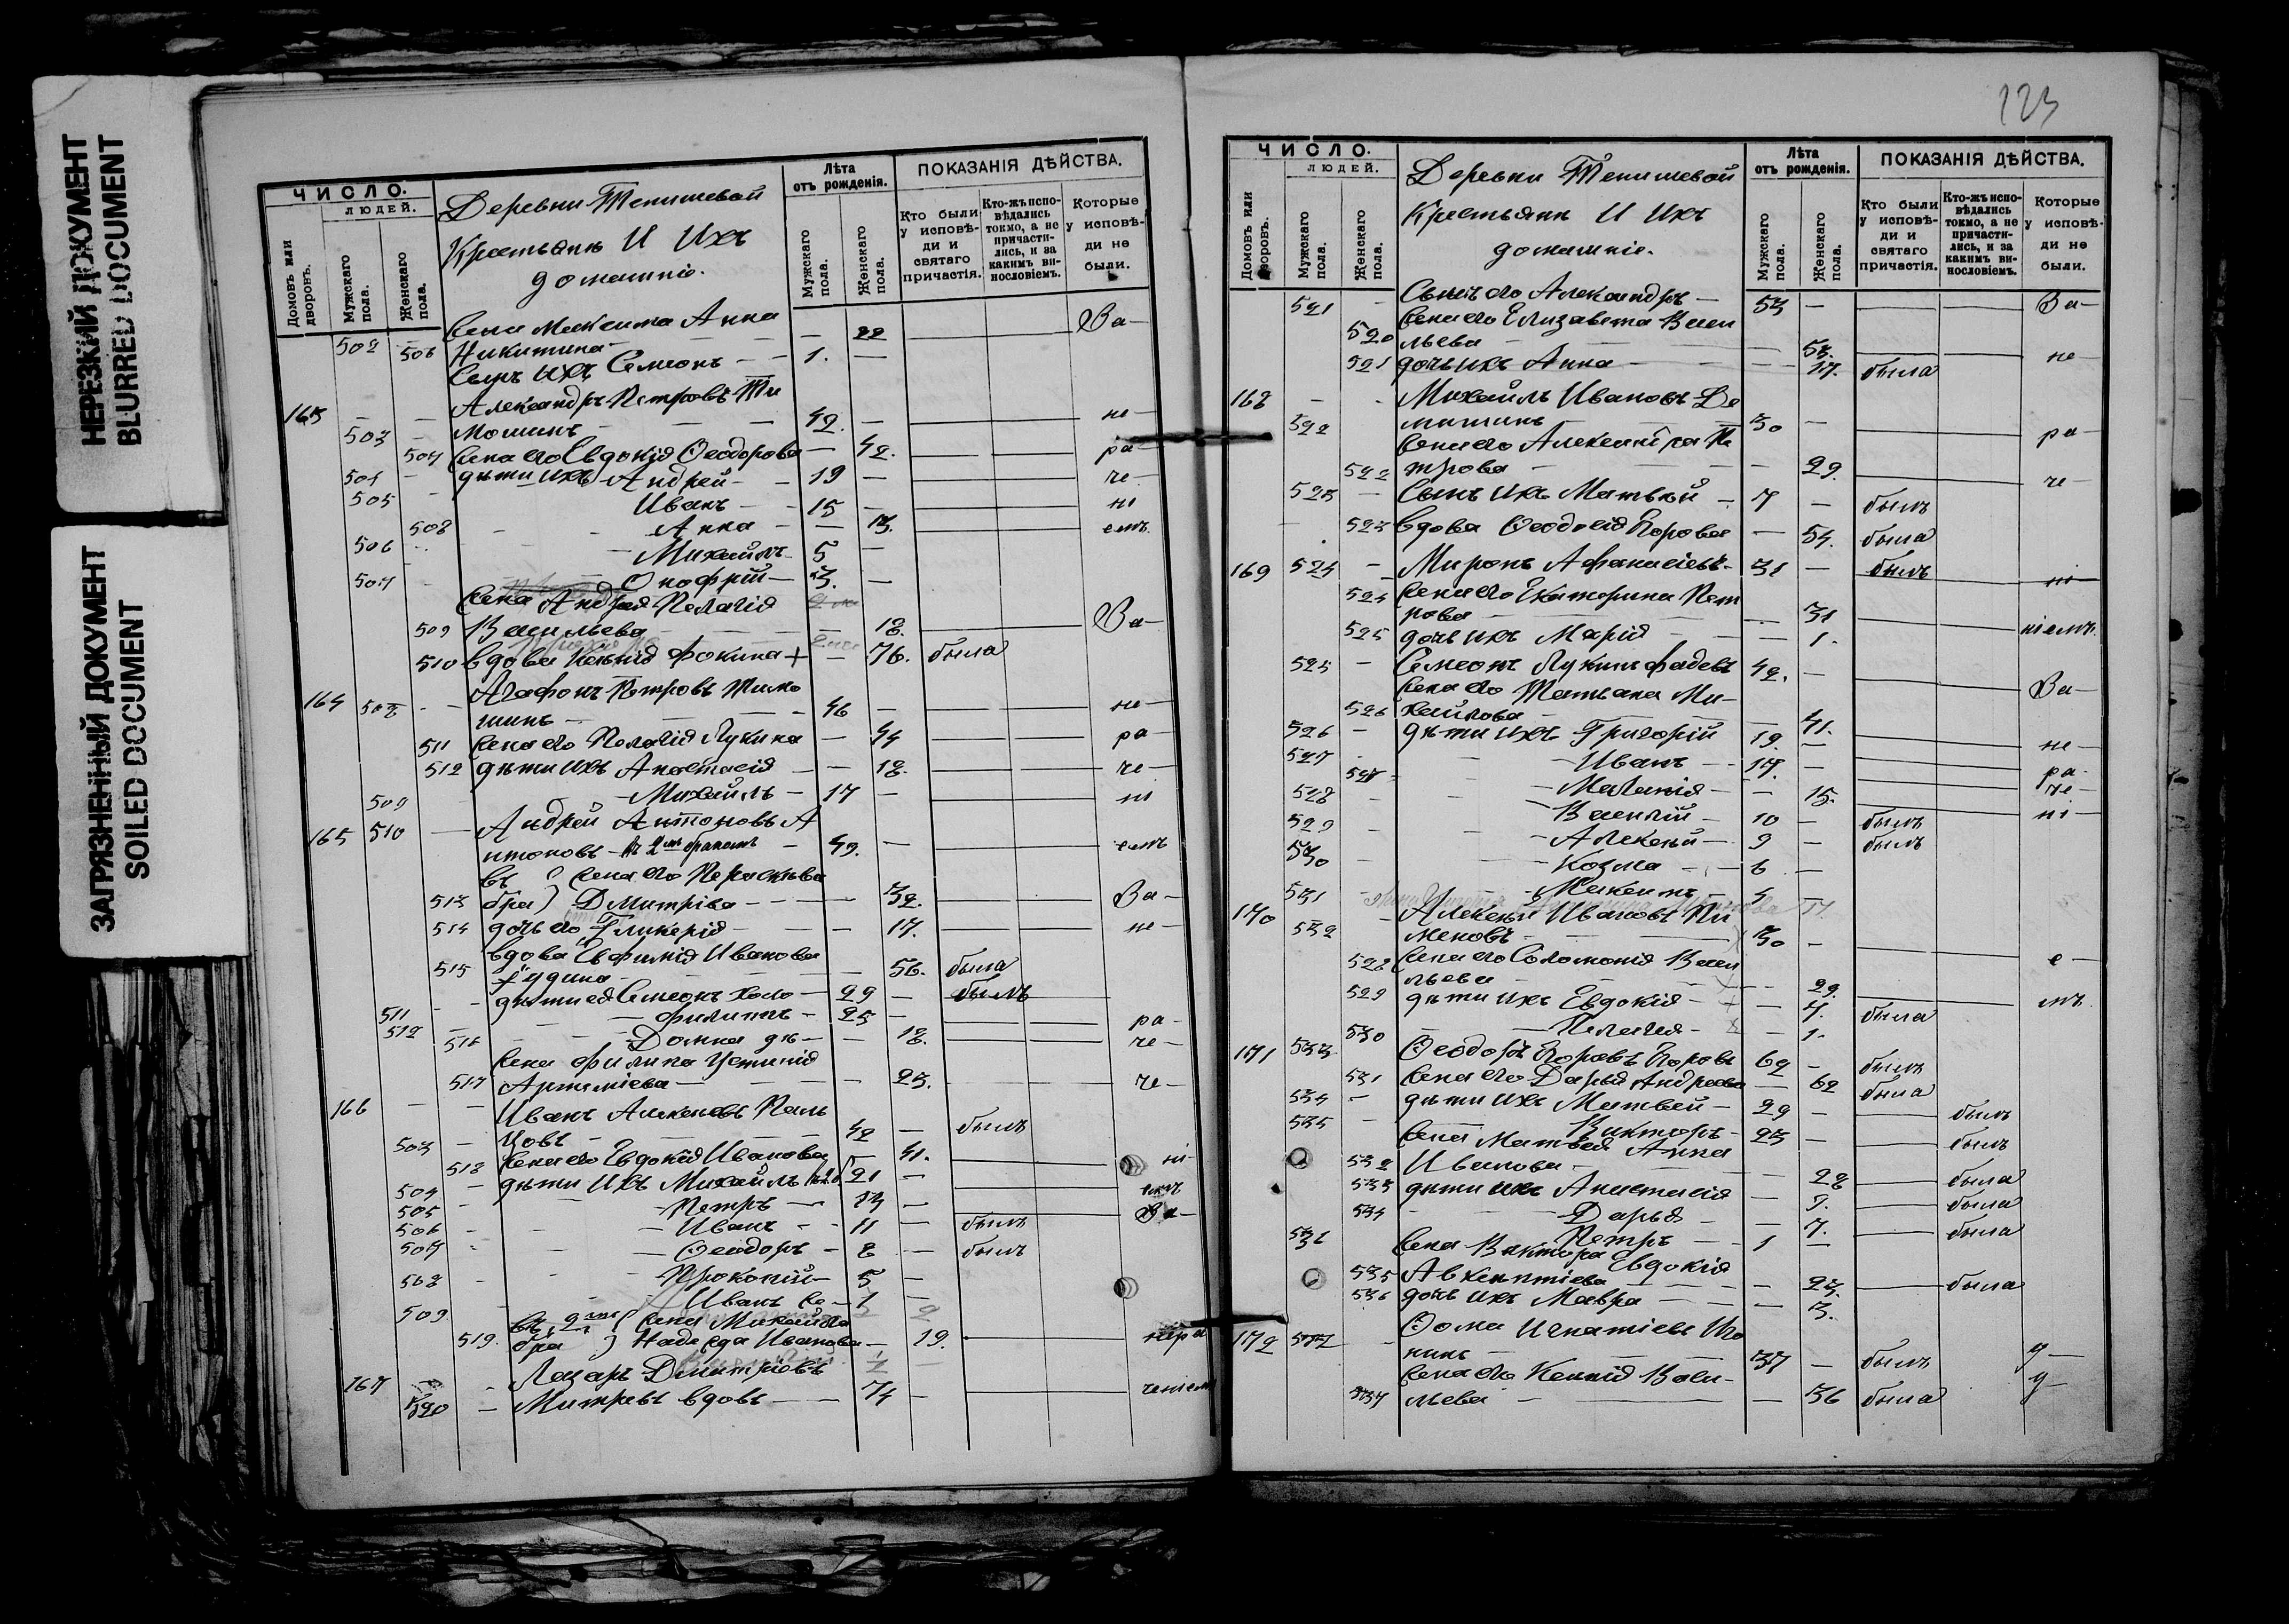 НЕРЕЗКИЙ ДОКУМЕНТ
BLURRED DOCUMENT
ЗАГРЯЗНЕННЫЙ ДОКУМЕНТ
SOILED DOCUMENT
ЧИСЛО.
ЛЮДЕЙ.
Домовъ или дворовъ.
Мужскаго пола.
Женскаго пола.
Деревни Тенишевой
Крестьяне И Ихъ
домашніе.
Лѣта
отъ рожденія.
Мужскаго пола.
Женскаго пола.
ПОКАЗАНІЯ ДѢЙСТВА.
Кто были у исповѣди и святаго причастія.
Кто-жъ исповѣдались токмо, а не причастились, и за какимъ винословіемъ.
Которые у исповѣди не были.
Жена Максима Анна
506 Никитина 22 За
502 Сынъ ихъ Семенъ 1.
163 Александръ Петровъ Ти
503 мошинъ 42. не
507 Жена его Евдокія Ѳеодорова 42. ра
504 дѣти ихъ Андрей 19 че
505 Иванъ 15 ні
508 Анна 13. емъ
506 Михаилъ 5
507 Онофрій 3.
Жена Андрея Пелагія
509 Васильева 18. За
510 вдова Ксенія Фокина + 76. была
164 508 Агафонъ Петровъ Тимо
шинъ 46 не
511 Жена его Пелагія Лукина 44 ра
512 дѣти ихъ Анастасія 18. че
509 Михаилъ 17 ні
165 510 Андрей Антоновъ А
нтоновъ 2мъ бракомъ 49. емъ
въ жена его Параскева
513 бра) Дмитріева 32. За
514 дочь его Гликерія 17. не
вдова Евфимія Иванова
515 56. была
511 дѣти ея Семенъ холо 29 былъ
512 Филиппъ 25 ра
516 Домна дѣ 18. че
Жена Филипа Устинія
517 Артеміева 23. че
166 Иванъ Алексѣевъ Паль
503 цовъ 42 былъ
518 Жена его Евдокія Иванова 41. ні
504 дѣти ихъ Михаилъ 21 емъ
505 Петръ 13 За
506 Иванъ 11 былъ
507 Ѳеодоръ 8 былъ
508 Прокопій 5
509 Иванъ 1
въ 2мъ жена Михаила
519. бра) Надежда Иванова 19. нера
167 Лазарь Дмитріевъ
520 Митревъ вдовъ 74 ченіем
123
ЧИСЛО.
ЛЮДЕЙ.
Домовъ или дворовъ.
Мужскаго пола.
Женскаго пола.
Деревни Тенишевой
Крестьяне И Ихъ
домашніе.
Лѣта
отъ рожденія.
Мужскаго пола.
Женскаго пола.
ПОКАЗАНІЯ ДѢЙСТВА.
Кто были у исповѣди и святаго причастія.
Кто-жъ исповѣдались токмо, а не причастились, и за какимъ винословіемъ.
Которые у исповѣди не были.
521 Сынъ его Александръ 53 За
Жена его Елизавета Васи
520 льева 53.
521 дочь ихъ Анна 17. была не
168 Михаилъ Ивановъ Де
522 30 ра
Жена его Александра Пе
522 трова 29. че
523 Сынъ ихъ Матвѣй 7 былъ
523 вдова Ѳеодосія Егорова 54. была
169 524 Миронъ Афанасіевъ 31 былъ ні
524 Жена его Екатерина Пет
рова 31
525 дочь ихъ Марія 1. ніемъ.
525 Семенъ Лукинъ Фадевъ 42. За
Жена его Татьяна Ми
526 хайлова 41.
526 дѣти ихъ Григорій 19. не
527 Иванъ 17. ра
527 Меланія 15. че
528 Василій 10 былъ ні
529 Алексѣй 9 былъ
530 Козма 6
531 Максимъ 4
170 Алексѣй Ивановъ Пи
532 меновъ 30 е
528 Жена его Соломонія Васи
льева 29.
529 дѣти ихъ Евдокія 4. была мъ
530 Пелагея 1.
171 533 Ѳеодоръ Егоровъ Егоровъ 62 былъ
531 Жена его Дарья Андреева 62 была
534 дѣти ихъ Матвей 29 былъ
535 Викторъ 23 былъ
Жена Матвея Анна
532 Иванова 28 была
533 дѣти ихъ Анастасія 9. была
534 Дарья 7. была
536 Петръ 1
Жена Виктора Евдокія
535 Авксентіева 23. была
536 дочь ихъ Мавра 3.
172 537 Ѳома Игнатіевъ Иго
нинъ 37 былъ
Жена его Ксенія Васи
537 льева 36 была